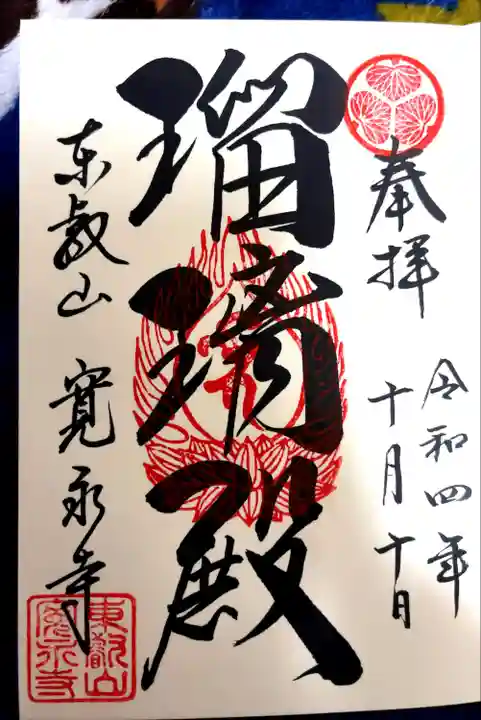 奉拝
令和四年
十月十日
瑠璃殿
東叡山 寛永寺
東叡山
寛永寺